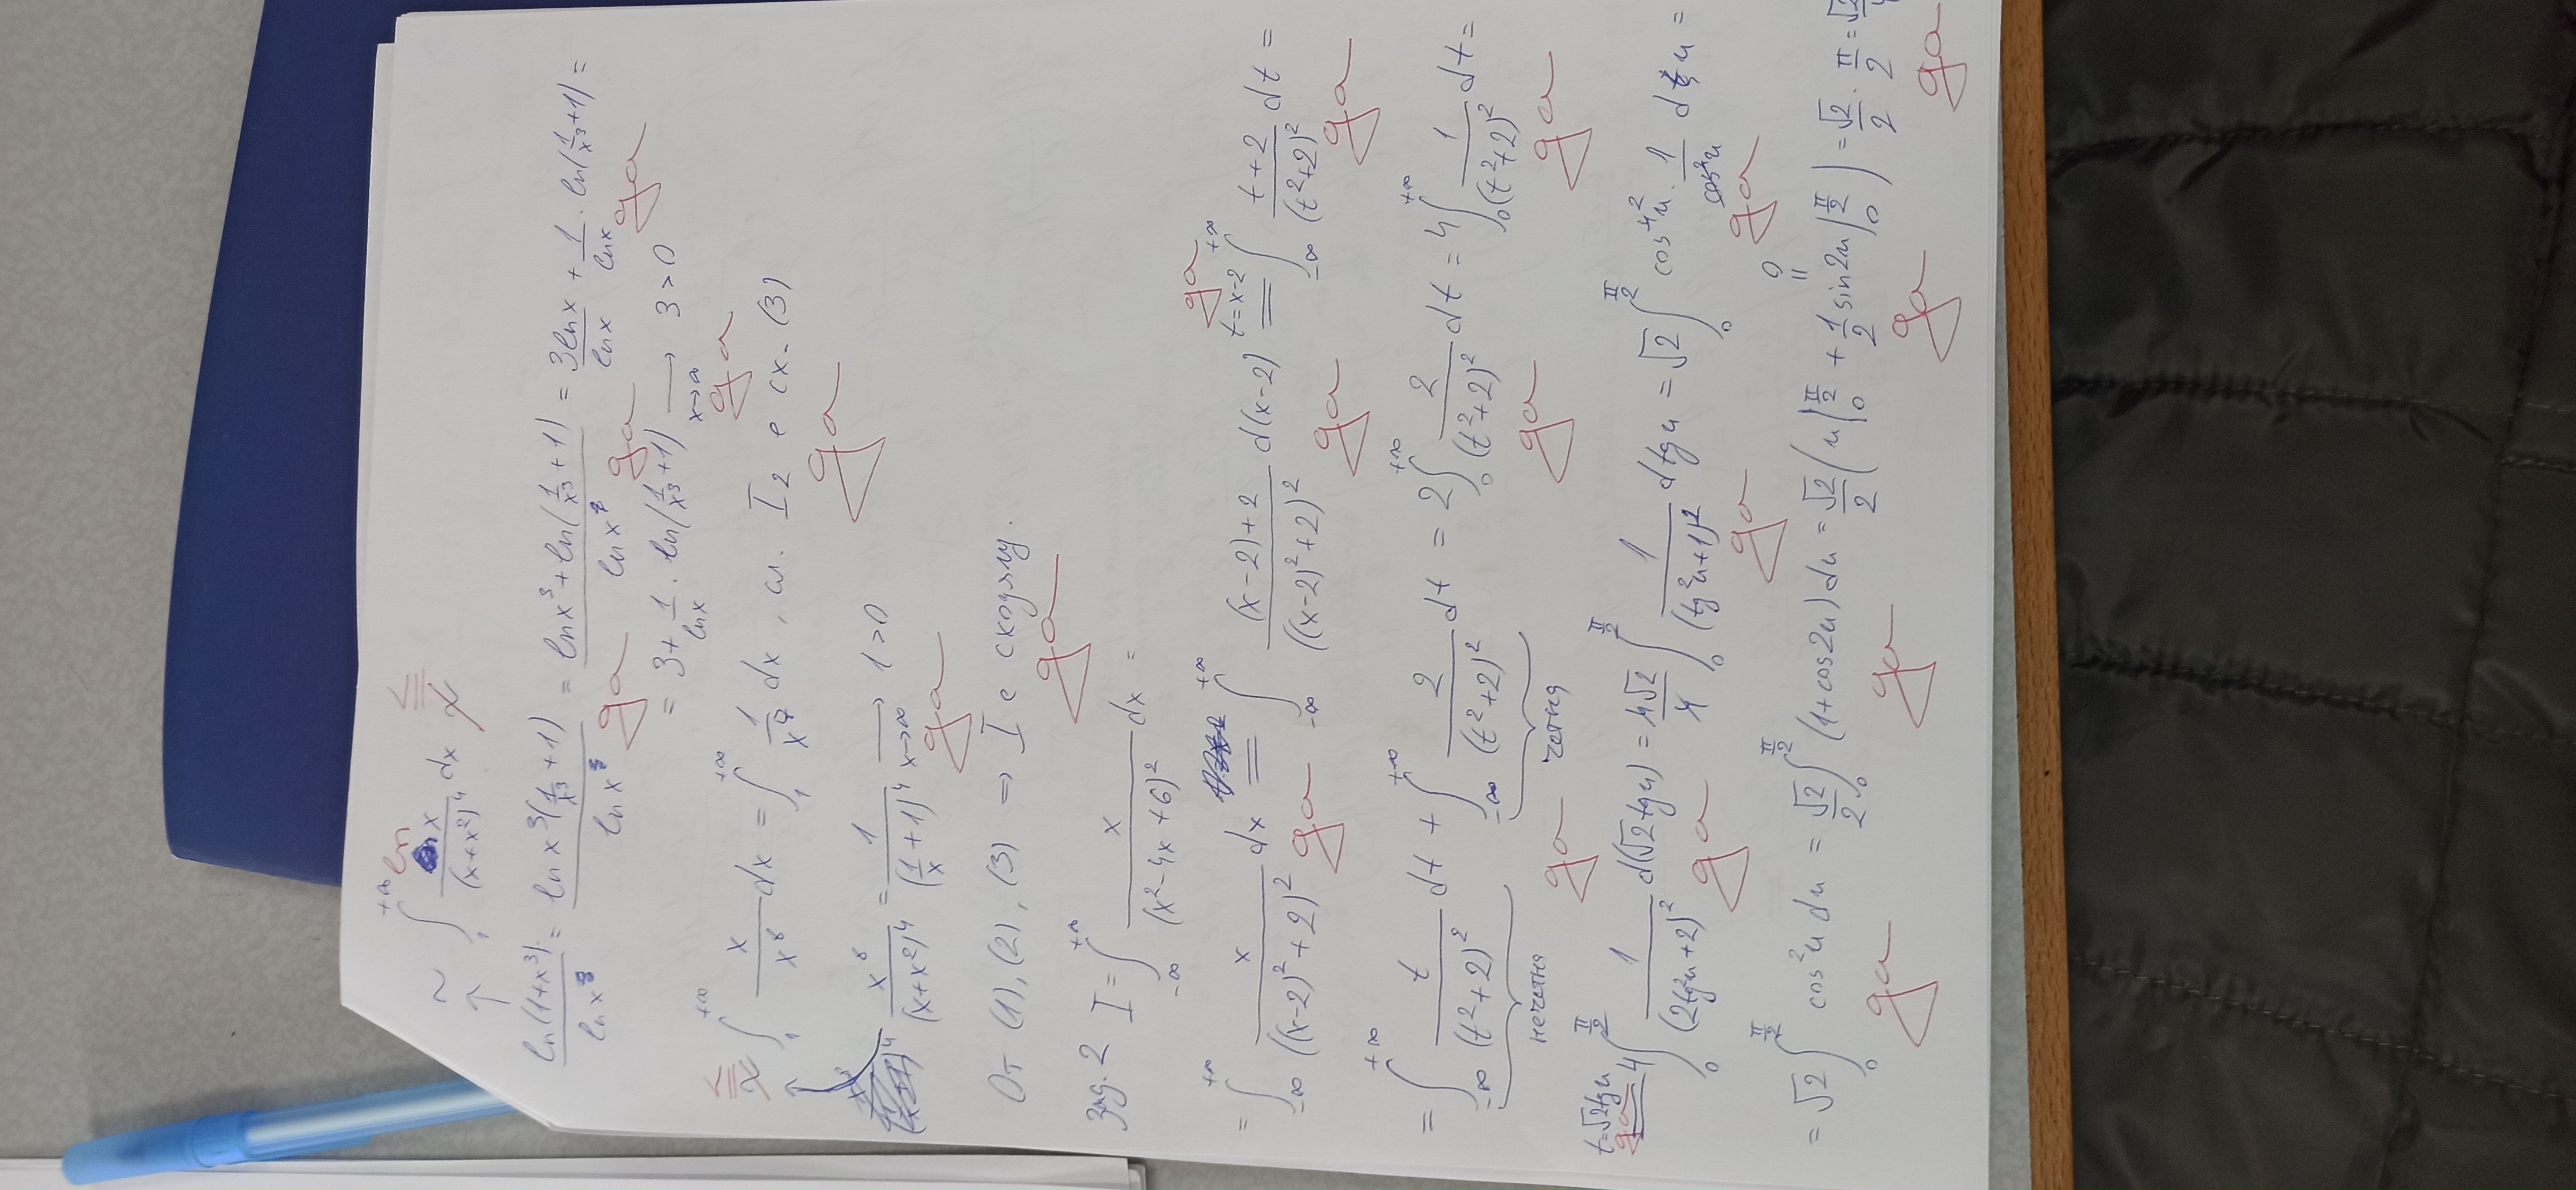 ~ ∫₁^{+∞} ln x / (x+x²)⁴ dx ≤
ln(1+x³) / ln x = ln x³(1/x³ + 1) / ln x = (ln x³ + ln(1/x³ + 1)) / ln x = 3ln x / ln x + 1/ln x · ln(1/x³ + 1) =
да да да
= 3 + 1/ln x · ln(1/x³ + 1) → 3 > 0
x→∞
да
≤ ∫₁^{+∞} x/x⁸ dx = ∫₁^{+∞} 1/x⁷ dx, сл. I₂ е сх. (3)
да
x⁸ / (x+x²)⁴ = 1 / (1/x + 1)⁴ → 1 > 0
x→∞
да
От (1), (2), (3) ⇒ I е сходящ.
да
Зад. 2 I = ∫_{-∞}^{+∞} x / (x²-4x+6)² dx =
да
= ∫_{-∞}^{+∞} x / ((x-2)²+2)² dx = ∫_{-∞}^{+∞} ((x-2)+2) / ((x-2)²+2)² d(x-2) =^{t=x-2} ∫_{-∞}^{+∞} (t+2) / (t²+2)² dt =
да да да
= ∫_{-∞}^{+∞} t / (t²+2)² dt + ∫_{-∞}^{+∞} 2 / (t²+2)² dt = 2∫₀^{+∞} 2 / (t²+2)² dt = 4∫₀^{+∞} 1 / (t²+2)² dt =
нечетна да четна да да
=^{t=√2 tg u} 4∫₀^{π/2} 1 / (2tg²u+2)² d(√2 tg u) = 4√2/4 ∫₀^{π/2} 1 / (tg²u+1)² d tg u = √2 ∫₀^{π/2} cos⁴u · 1/cos²u du =
да да да да
= √2 ∫₀^{π/2} cos²u du = √2/2 ∫₀^{π/2} (1+cos2u) du = √2/2 (u|₀^{π/2} + 1/2 sin2u|₀^{π/2}) = √2/2 · π/2 =
0
=
да да да да